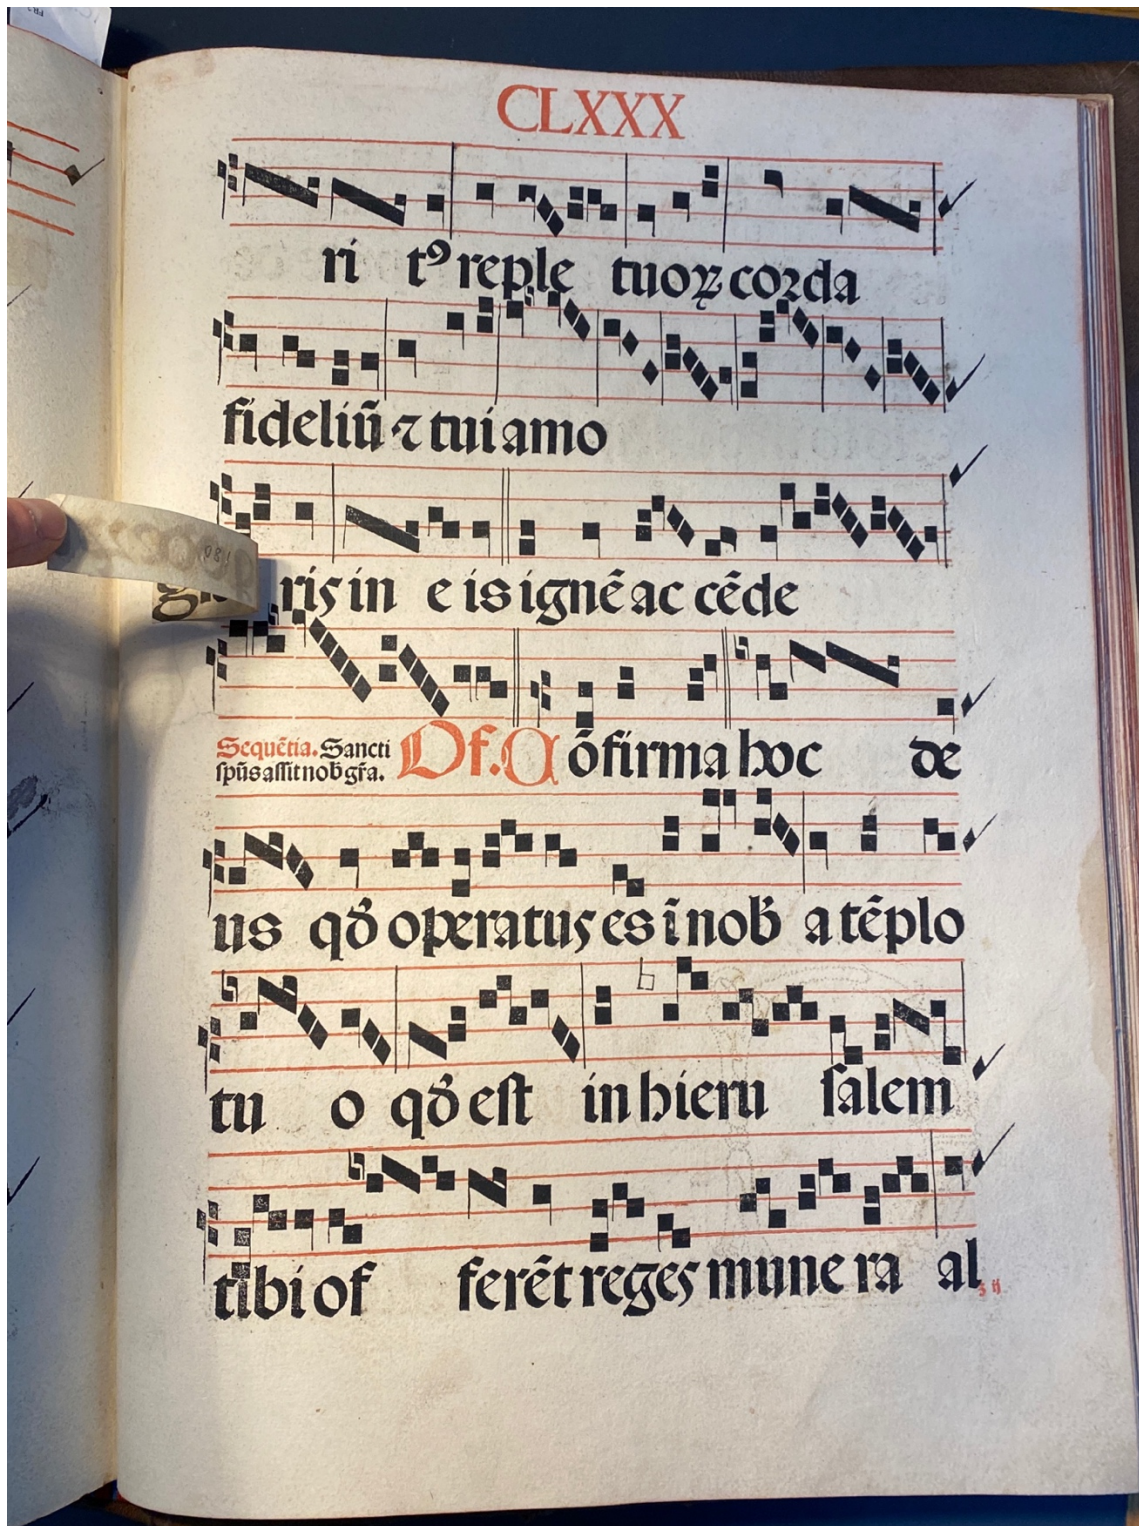 CLXXX
ri tꝰ reple tuoꝝ corda
fideliū ⁊ tui amo
ris in e is ignē ac cēde
Sequētia. Sancti
spūs assit nob̄ gr̄a.
Of. Cōfirma hoc de
us qđ operatus es ī nob̄ a tēplo
tu o qđ est in hieru salem
tibi of ferēt reges mune ra al